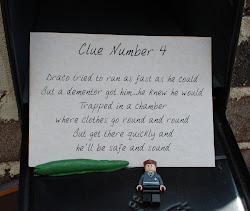 Clue Number 4
Draco tried to run as fast as he could
But a dementor got him...he knew he would
Trapped in a chamber
where clothes go round and round
But get there quickly and
he'll be safe and sound